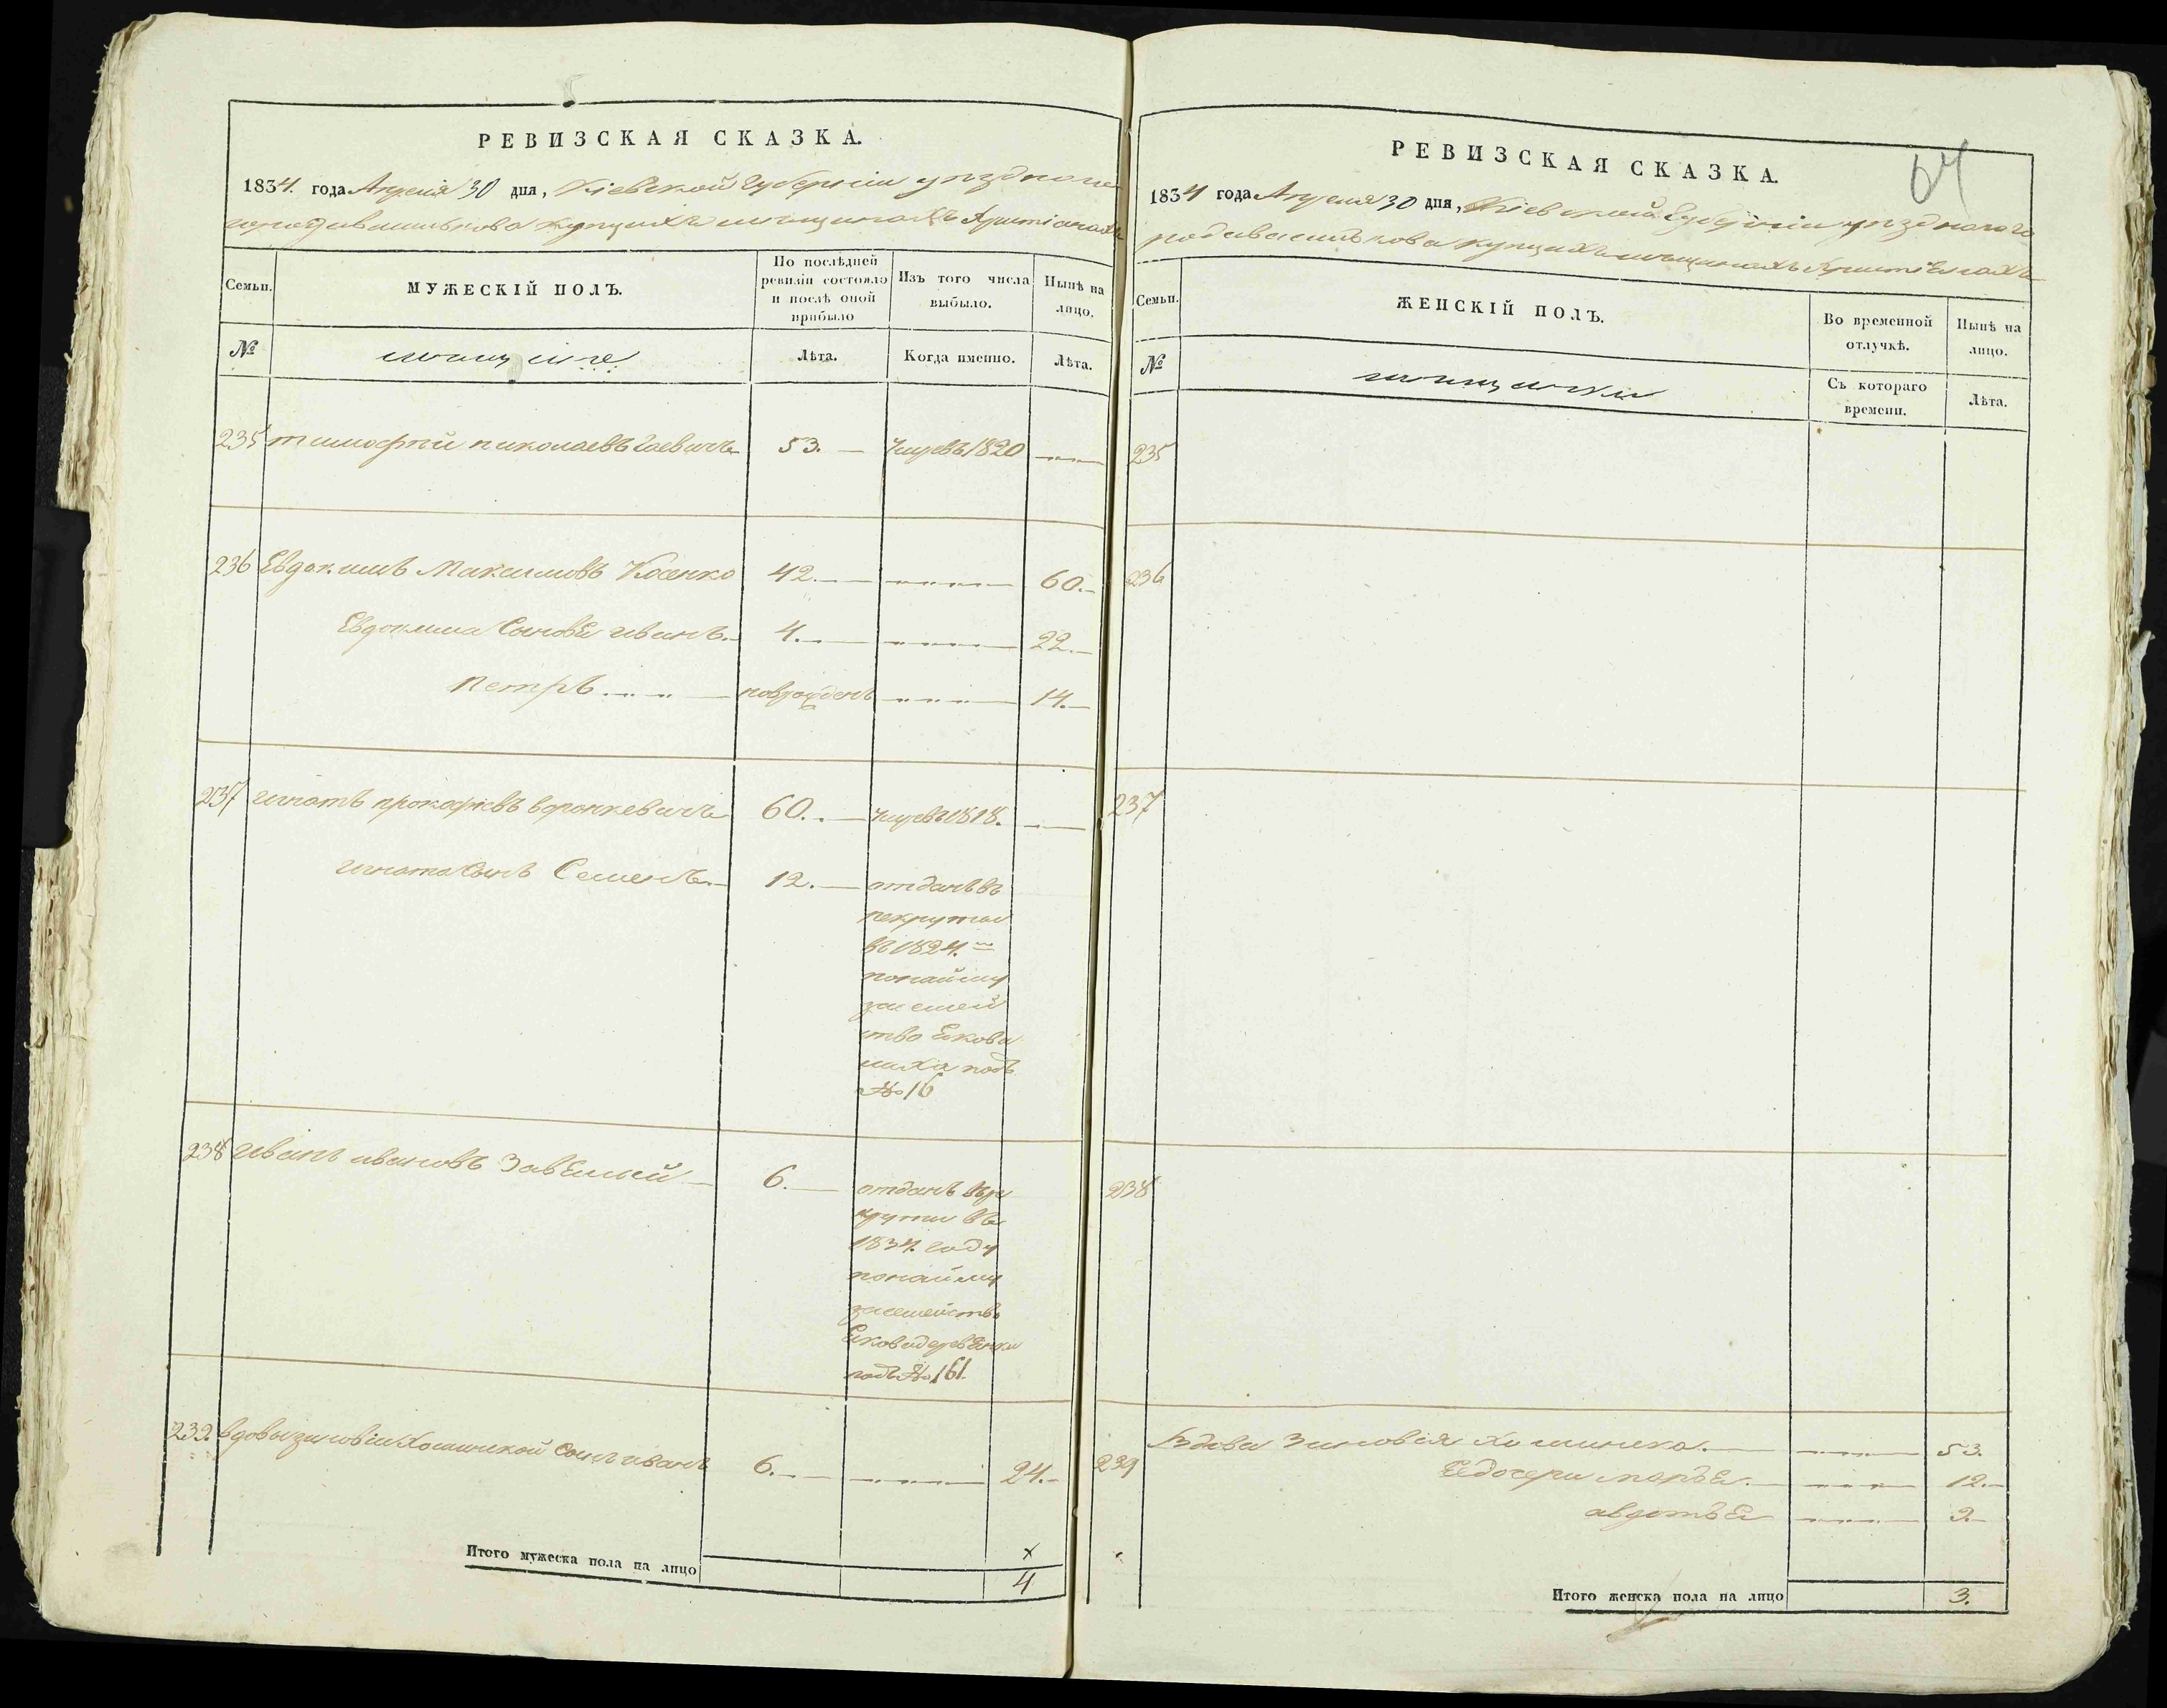 РЕВИЗСКАЯ СКАЗКА.
1834. года Апреля 30 дня, Кіевской Губерніи уезднаго
города василькова купцахъ мещанахъ христіанахъ
Семьи.
МУЖЕСКІЙ ПОЛЪ.
По послѣдней
ревизіи состояло
и послѣ оной
прибыло
Изъ того числа
выбыло.
Нынѣ на
лицо.
№
мещане
Лѣта.
Когда именно.
Лѣта.
235 тимофей николаевъ 53. умревъ 1820
236 Евдокимъ Максимовъ Косенко 42. 60.
Евдокима Сыновья иванъ. 4. 22.
Петръ новрожденъ 14.
237 игнатъ прокофіевъ воронкевичъ 60. умревъ 1818.
игната Сынъ Семенъ. 12. отданъ въ
рекруты
въ 1824.
понайму
засемей
ство Якова
подъ
№ 16
238 иванъ ивановъ 6. отданъ въре
круты въ
1834. году
понайму
засемейство
Якова
подъ № 161.
239. вдовы зиновіи Хоминской Сынъ иванъ 6. 24.
Итого мужеска пола на лицо
х
4
РЕВИЗСКАЯ СКАЗКА.
64
1834 года Апреля 30 дня, Кіевской Губерніи уезднаго го
рода василькова купцахъ мещанахъ христіянахъ
Семьи.
ЖЕНСКІЙ ПОЛЪ.
Во временной
отлучкѣ.
Нынѣ на
лицо.
№
мещанки
Съ котораго
времени.
Лѣта.
235
236
237
238
239 Вдова Зиновія хоминска. 53.
Еядочери марья. 12.
авдотья 9.
Итого женска пола на лицо 3.